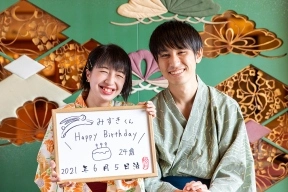 みずきくん
Happy Birthday
24歳
2021年6月5日